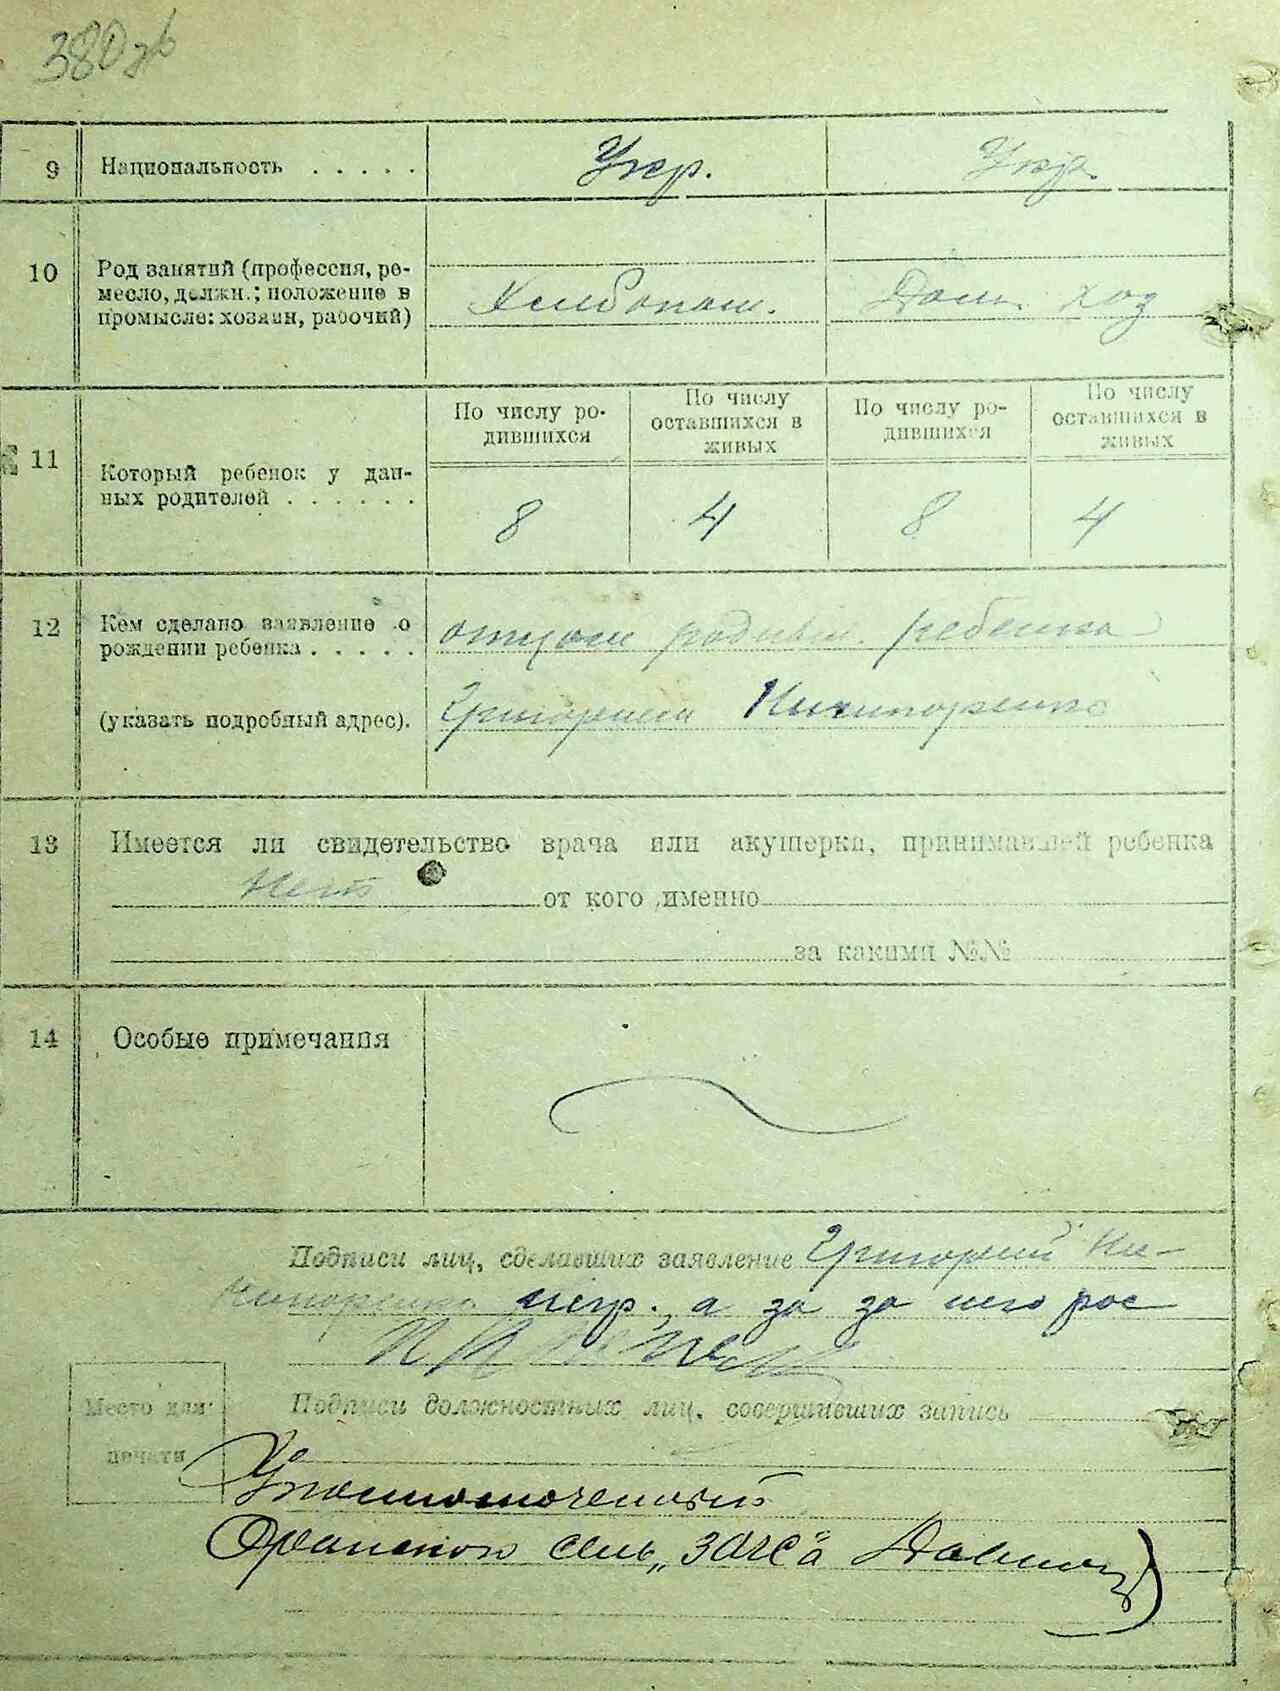 380 зв
9 Национальность . . . . . Укр. Укр.
10 Род занятий (профессия, ре-
месло, должн.; положение в
промысле: хозяин, рабочий)
Хлебопаш. Дом. хоз
По числу ро-
дившихся
По числу
оставшихся в
живых
По числу ро-
дившихся
По числу
оставшихся в
живых
11 Который ребенок у дан-
ных родителей . . . . . .
8 4 8 4
12 Кем сделано заявление о
рождении ребенка . . . . .
отцом родивш. ребенка
(указать подробный адрес).
Григорием Никипоренко
13 Имеется ли свидетельство врача или акушерки, принимавшей ребенка
Нет от кого именно
за какими №№
14 Особые примечания
Подписи лиц, сделавших заявление Григорий Ни-
кипоренко негр., а за за него рос
Место для
печати
Подписи должностных лиц, совершивших запись
Уполномоченный
сель „ЗАГС"а